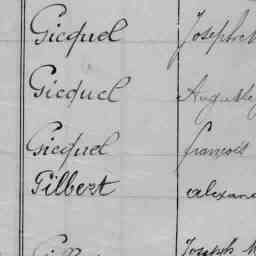 Gicquel Joseph
Gicquel Auguste
Gicquel françois
Gilbert alexan
Joseph